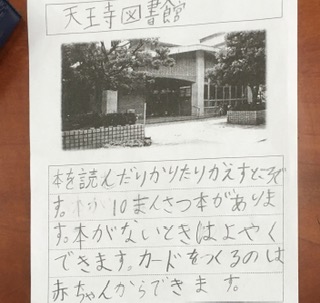 天王寺図書館
本を読んだりかりたりかえすところで
す。 10まんさつ本がありま
す。本がないときはよやく
できます。カードをつくるのは
赤ちゃんからできます。